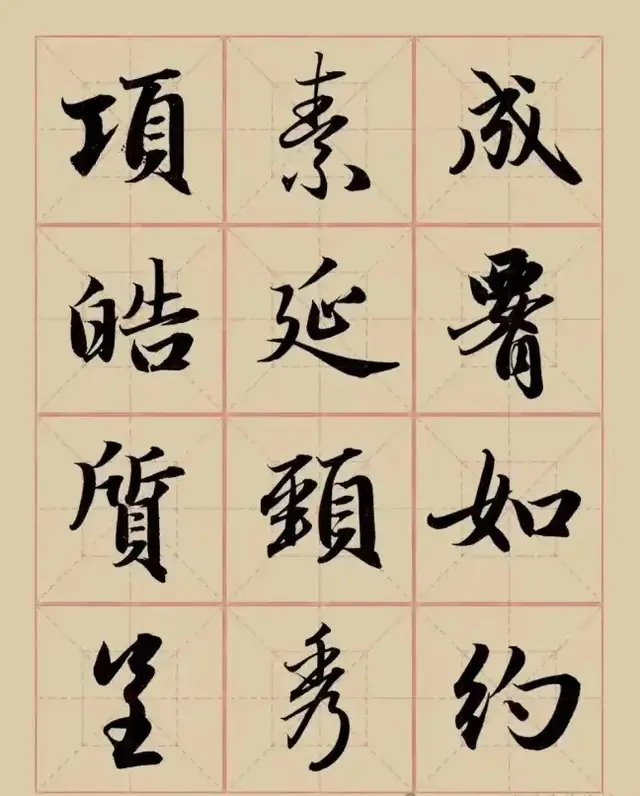 成腰如约
素延頸秀
項皓質呈